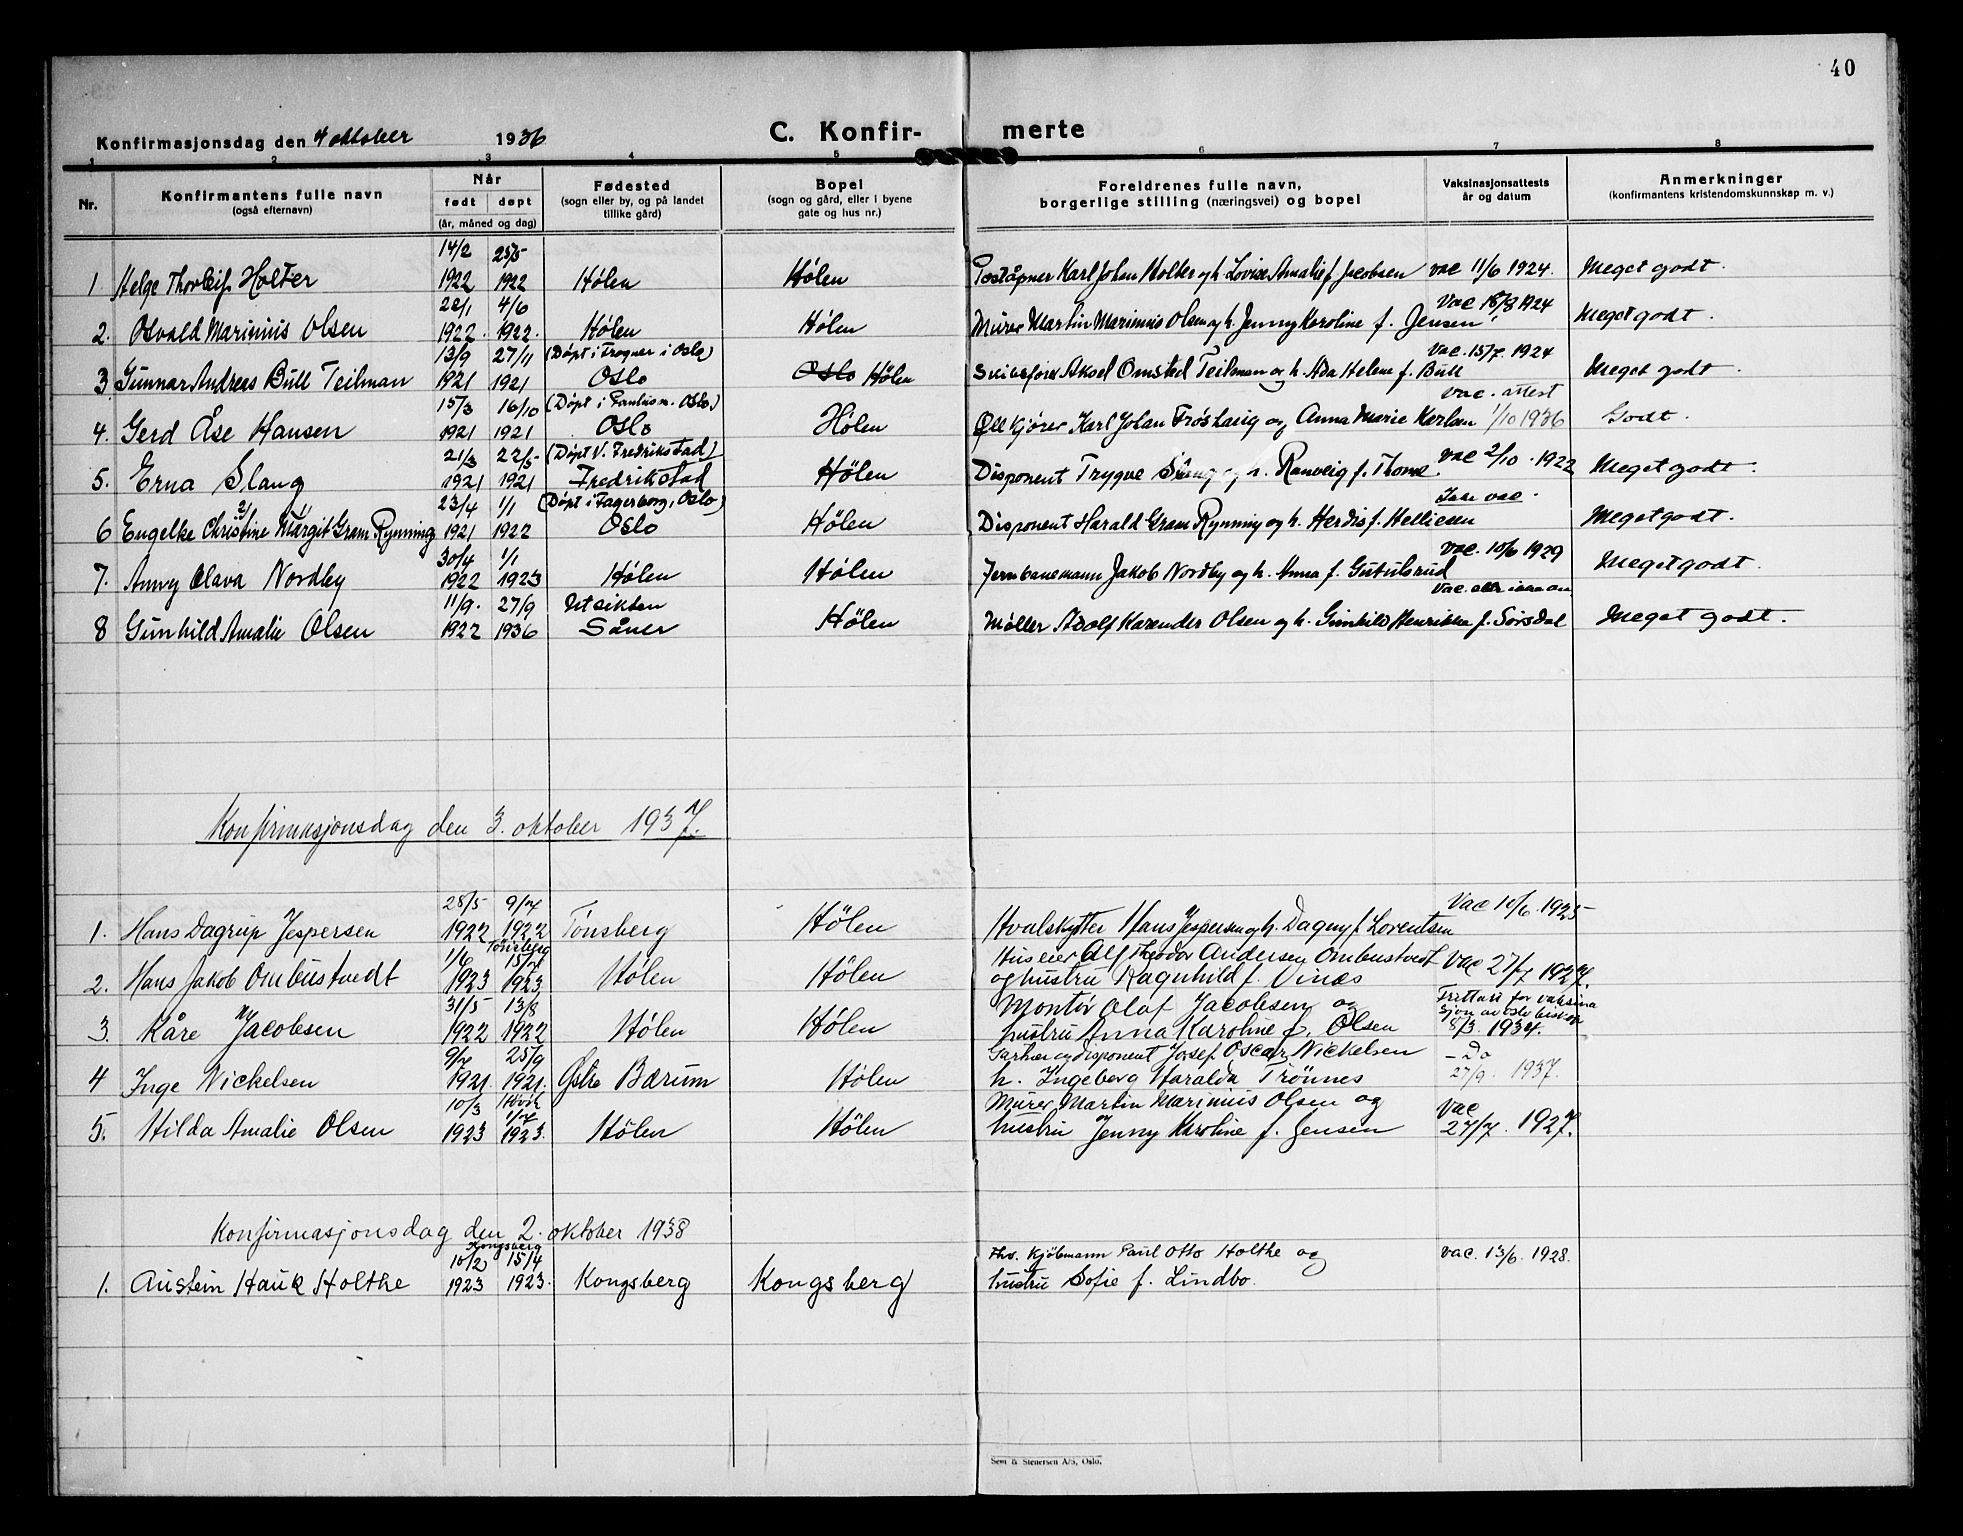 40
Konfirmasjonsdag den 4 oktober 1936
C. Konfir- merte
1 2 3 4 5 6 7 8
Nr.
Konfirmantens fulle navn
(også efternavn)
Når
født døpt
(år, måned og dag)
Fødested
(sogn eller by, og på landet
tillike gård)
Bopel
(sogn og gård, eller i byene
gate og hus nr.)
Foreldrenes fulle navn,
borgerlige stilling (næringsvei) og bopel
Vaksinasjonsattests
år og datum
Anmerkninger
(konfirmantens kristendomskunnskap m. v.)
14/2 25/5
1 Helge Thorleif Holter 1922 1922 Hølen Hølen Poståpner Karl Johan Holter og h. Lovise Amalie f. Jacobsen vac 11/6 1924. Meget godt.
22/1 4/6 Vac 18/8 1924
2. Osvald Marinius Olsen 1922. 1922. Hølen Hølen Murer Martin Marinius Olsen og h. Jenny Karoline f. Jensen Meget godt.
13/9 27/11 (Døpt i Frogner i Oslo) Vac. 15/7 1924
3 Gunnar Andreas Bull Teilman 1921 1921 Oslo Oslo Hølen Aksel Omsted Teilman og h. Ada Helene f. Bull Meget godt.
15/3 16/10 (Døpt i Oslo) Vac. attest
4. Gerd Åse Hansen 1921 1921 Oslo Hølen Ølkjører Karl Johan Frøshaug og Anna Marie Karlsen 1/10 1936 Godt.
21/3 22/5 (Døpt V. Fredrikstad)
5. Erna Slang 1921 1921 Fredrikstad Hølen Disponent Trygve Slang og h. Ranveig f. vac 2/10. 1922 Meget godt.
23/4 1/1 (Døpt i Fagerborg, Oslo) Ikke vac.
6 Engelke Christine Margit Gram Rynning 1921 1922 Oslo Hølen Disponent Harald Gram Rynning og h. Herdis f. Helliesen Meget godt.
30/4 1/1 Vac. 10/6 1929
7. Anny Olava Nordby 1922 1923 Hølen Hølen Jernbanemann Jakob Nordby og h. Anna f. Gutulsrud Meget godt.
11/9. 27/9 Utsikten Vac.
8 Gunhild Amalie Olsen 1922 1936 Såner Hølen Møller Adolf Karender Olsen og h. Gunhild Henrikke f. Sørsdal Meget godt.
Konfirmasjonsdag den 3. oktober 1937.
28/5 9/7 Vac 10/6. 1925
1. Hans Dagrup Jespersen 1922 1922 Tønsberg Hølen Hvalskytter Hans Jespersen og h. Dagny f. Lorentsen
Tønsberg
1/6 15/7 Huseier Alf Theodor Andersen Ombustvedt
2. Hans Jakob Ombustvedt 1923 1923 Hølen Hølen og hustru Ragnhild f. Vinæs Vac 27/7 1927.
31/5 13/8 Montør Olaf Jacobsen og Frittatt for vaksina
sjon av Oslo biskop
3. Kåre Jacobsen 1922 1922 Hølen Hølen hustru Anna Karoline f. Olsen 8/3 1934.
9/7 25/9 Gartner og disponent Josef Oscar Nickelsen - Do
4 Inge Nickelsen 1921. 1921. Østre Bærum Hølen h. Ingeborg Haralda Trønnes 27/9. 1937.
Høvik
10/3 1/7 Murer Martin Marinius Olsen og Vac
5. Hilda Amalie Olsen 1923 1923. Hølen Hølen hustru Jenny Karoline f. Jensen 27/7. 1927.
Konfirmasjonsdag den 2. oktober 1938
Kongsberg
10/2 15/4 Fhv. Kjøbmann Paul Otto Holthe og vac. 13/6. 1928.
1. Austein Hauk Holthe 1923 1923. Kongsberg Kongsberg hustru Sofie f. Lindbo.
Sem & Stenersen A/S, Oslo.